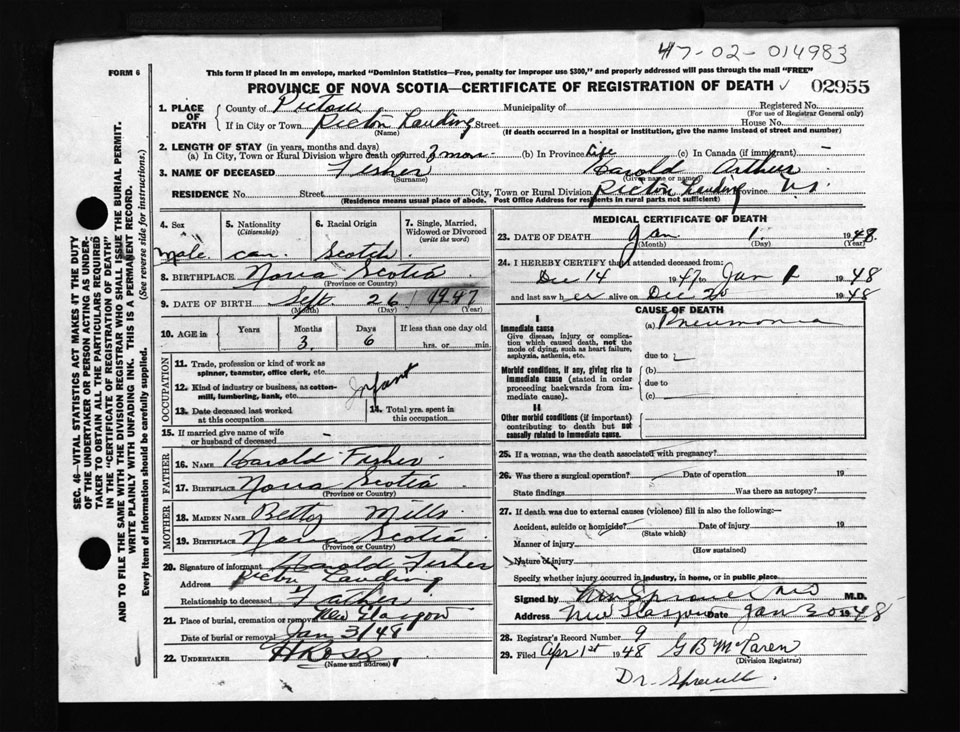 47-02-014983
FORM 6
This form if placed in an envelope, marked "Dominion Statistics—Free, penalty for improper use $300," and properly addressed will pass through the mail "FREE"
PROVINCE OF NOVA SCOTIA—CERTIFICATE OF REGISTRATION OF DEATH 02955
1. PLACE OF DEATH
County of Pictou Municipality of Registered No.
(For use of Registrar General only)
If in City or Town Pictou Landing Street House No.
(Name) (If death occurred in a hospital or institution, give the name instead of street and number)
2. LENGTH OF STAY (in years, months and days)
(a) In City, Town or Rural Division where death occurred 3 mon (b) In Province Life (c) In Canada (if immigrant) —
3. NAME OF DECEASED Fisher Harold Arthur
(Surname) (Given name or names)
RESIDENCE No. Street City, Town or Rural Division Pictou Landing Province N.S.
(Residence means usual place of abode. Post Office Address for residents in rural parts not sufficient)
SEC. 46—VITAL STATISTICS ACT MAKES IT THE DUTY
OF THE UNDERTAKER OR PERSON ACTING AS UNDER-
TAKER TO OBTAIN ALL THE PARTICULARS REQUIRED
IN THE "CERTIFICATE OF REGISTRATION OF DEATH"
AND TO FILE THE SAME WITH THE DIVISION REGISTRAR WHO SHALL ISSUE THE BURIAL PERMIT.
WRITE PLAINLY WITH UNFADING INK. THIS IS A PERMANENT RECORD.
Every Item of Information should be carefully supplied. (See reverse side for instructions.)
4. Sex 5. Nationality 6. Racial Origin 7. Single, Married,
(Citizenship) Widowed or Divorced
(write the word)
male can. Scotch
8. BIRTHPLACE Nova Scotia
(Province or Country)
9. DATE OF BIRTH Sept. 26 1947
(Month) (Day) (Year)
10. AGE in Years Months Days If less than one day old
3 6 hrs. or min.
OCCUPATION
11. Trade, profession or kind of work as
spinner, teamster, office clerk, etc.
12. Kind of industry or business, as cotton-
mill, lumbering, bank, etc. Infant
13. Date deceased last worked 14. Total yrs. spent in
at this occupation this occupation
15. If married give name of wife
or husband of deceased
FATHER
16. NAME Harold Fisher
17. BIRTHPLACE Nova Scotia
(Province or Country)
MOTHER
18. MAIDEN NAME Betty Mills
19. BIRTHPLACE Nova Scotia
(Province or Country)
20. Signature of informant Harold Fisher
Address Pictou Landing
Relationship to deceased Father
21. Place of burial, cremation or removal New Glasgow
Date of burial or removal Jan 3/48
22. UNDERTAKER H Ross
(Name and address)
MEDICAL CERTIFICATE OF DEATH
23. DATE OF DEATH Jan 1 1948
(Month) (Day) (Year)
24. I HEREBY CERTIFY that I attended deceased from:
Dec 14 1947 to Jan 1 1948
and last saw h er alive on Dec 20 1948
CAUSE OF DEATH
I
Immediate cause (a) Pneumonia
Give disease, injury or complica-
tion which caused death, not the
mode of dying, such as heart failure,
asphyxia, asthenia, etc. due to
Morbid conditions, if any, giving rise to (b)
immediate cause (stated in order due to
proceeding backwards from im-
mediate cause). (c)
II
Other morbid conditions (if important)
contributing to death but not
causally related to immediate cause.
25. If a woman, was the death associated with pregnancy?
26. Was there a surgical operation? Date of operation 19
State findings Was there an autopsy?
27. If death was due to external causes (violence) fill in also the following:—
Accident, suicide or homicide? Date of injury 19
(State which)
Manner of injury
(How sustained)
Nature of injury
Specify whether injury occurred in industry, in home, or in public place
Signed by Sproull MD M.D.
Address New Glasgow Date Jan 30 1948
28. Registrar's Record Number 9
29. Filed Apr 1st 1948 G B McLaren
(Division Registrar)
Dr. Sproull.